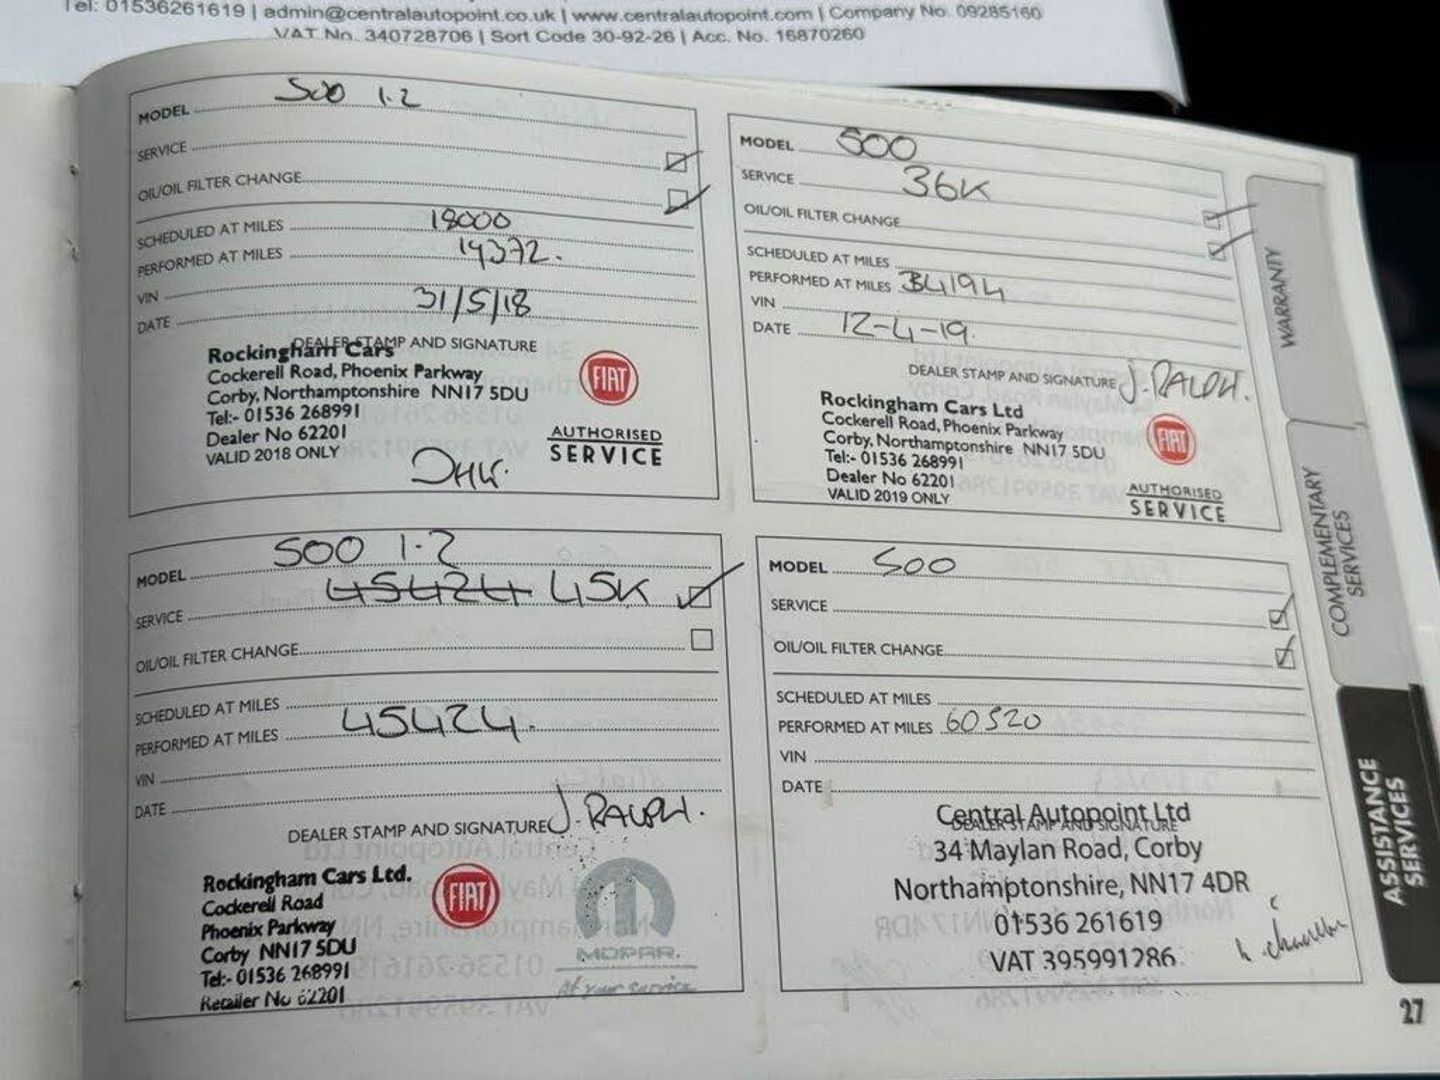 Tel: 01536261619 | admin@centralautopoint.co.uk | www.centralautopoint.com | Company No. 09285160
VAT No. 340728706 | Sort Code 30-92-26 | Acc. No. 16870260
MODEL 500 1.2
SERVICE
OIL/OIL FILTER CHANGE
SCHEDULED AT MILES 18000
PERFORMED AT MILES 19372.
VIN
DATE 31/5/18
DEALER STAMP AND SIGNATURE
Rockingham Cars
Cockerell Road, Phoenix Parkway
Corby, Northamptonshire NN17 5DU
Tel:- 01536 268991
Dealer No 62201
VALID 2018 ONLY
FIAT
AUTHORISED
SERVICE
MODEL 500
SERVICE 36K
OIL/OIL FILTER CHANGE
SCHEDULED AT MILES
PERFORMED AT MILES 34194
VIN
DATE 12-4-19.
DEALER STAMP AND SIGNATURE J. RALPH.
Rockingham Cars Ltd
Cockerell Road, Phoenix Parkway
Corby, Northamptonshire NN17 5DU
Tel:- 01536 268991
Dealer No 62201
VALID 2019 ONLY
FIAT
AUTHORISED
SERVICE
MODEL 500 1.2
SERVICE 45424 45K
OIL/OIL FILTER CHANGE
SCHEDULED AT MILES
PERFORMED AT MILES 45424.
VIN
DATE
DEALER STAMP AND SIGNATURE J. RALPH.
Rockingham Cars Ltd.
Cockerell Road
Phoenix Parkway
Corby NN17 5DU
Tel:- 01536 268991
Retailer No 62201
FIAT
MOPAR.
At your service
MODEL 500
SERVICE
OIL/OIL FILTER CHANGE
SCHEDULED AT MILES
PERFORMED AT MILES 60520
VIN
DATE
DEALER STAMP AND SIGNATURE
Central Autopoint Ltd
34 Maylan Road, Corby
Northamptonshire, NN17 4DR
01536 261619
VAT 395991286
WARRANTY
COMPLEMENTARY
SERVICES
ASSISTANCE
SERVICES
27